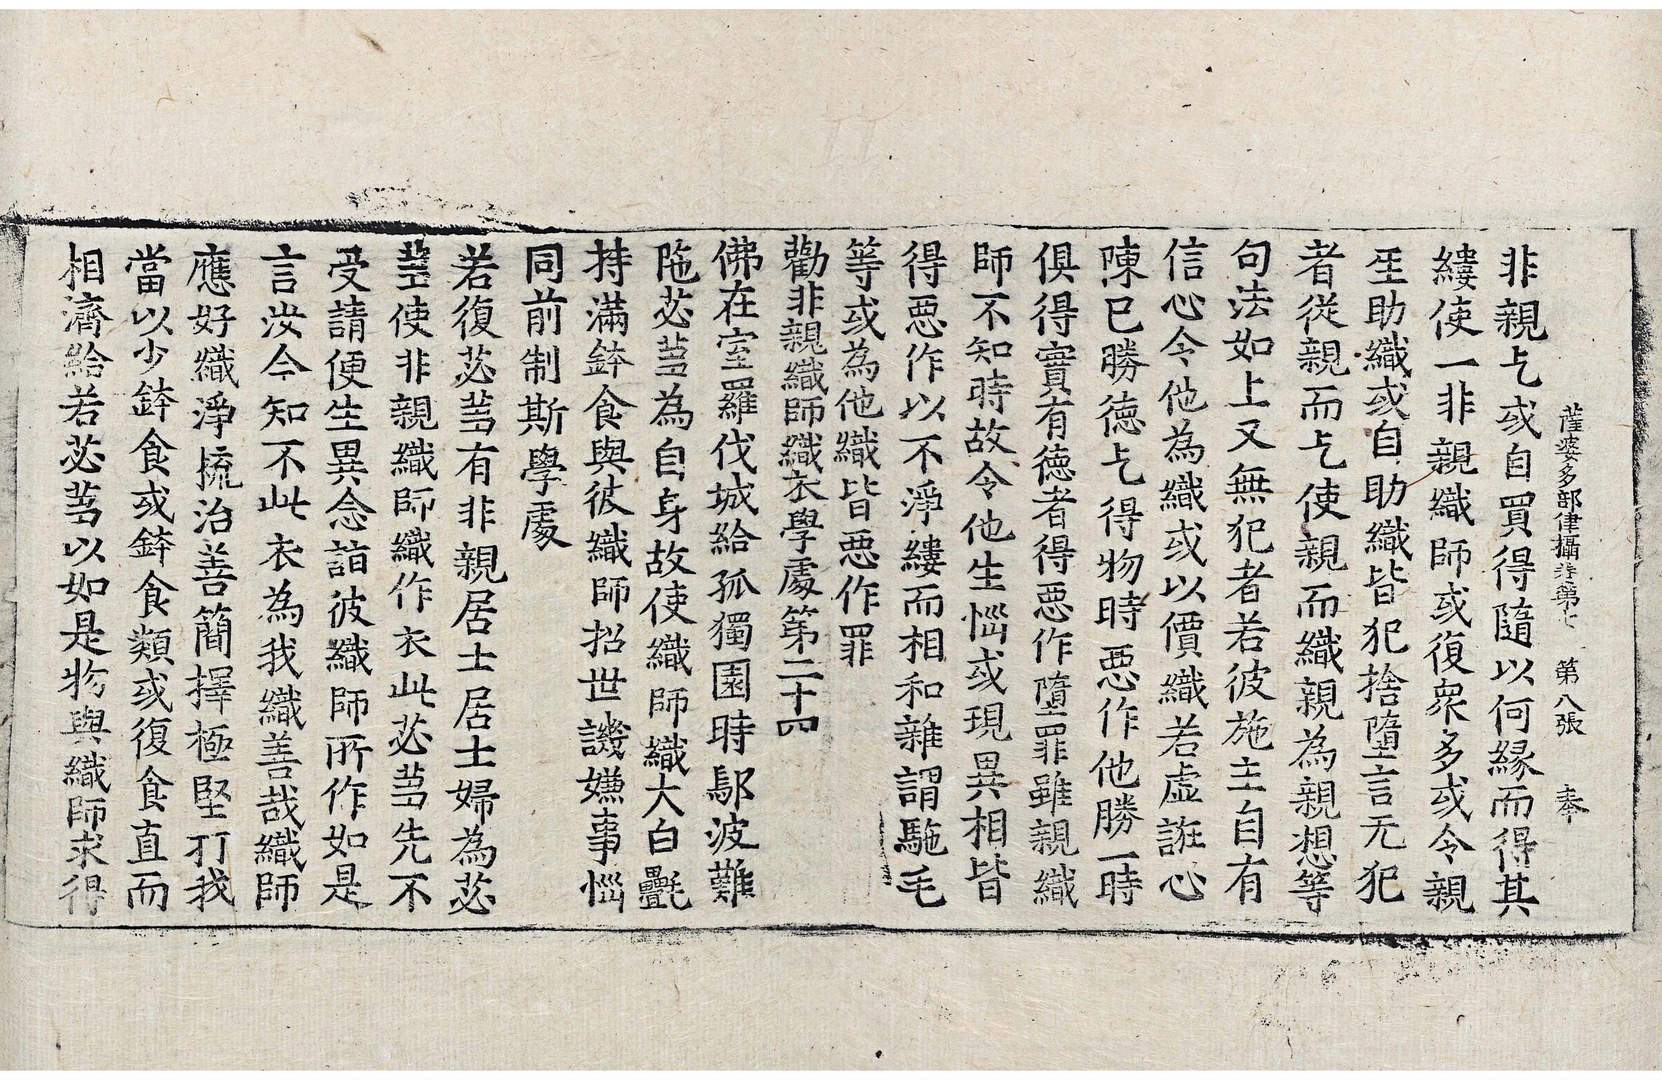 薩婆多部律攝卷第七 第八張 奉
非親乞或自買得隨以何緣而得其
縷使一非親織師或復衆多或令親
𤯔助織或自助織皆犯捨墮言无犯
者從親而乞使親而織親為親想等
句法如上又無犯者若彼施主自有
信心令他為織或以價織若虛誑心
陳已勝德乞得物時惡作他勝一時
俱得實有德者得惡作墮罪雖親織
師不知時故令他生惱或現異相皆
得惡作以不淨縷而相和雜謂駞毛
等或為他織皆惡作罪
勸非親織師織衣學處第二十四
佛在室羅伐城給孤獨園時鄔波難
陁苾蒭為自身故使織師織大白㲲
持滿鉢食與彼織師招世譏嫌事惱
同前制斯學處
若復苾蒭有非親居士居士婦為苾
蒭使非親織師織作衣此苾蒭先不
受請便生異念詣彼織師所作如是
言汝今知不此衣為我織善哉織師
應好織淨梳治善簡擇極堅打我
當以少鉢食或鉢食類或復食直而
相濟給若苾蒭以如是物與織師求得